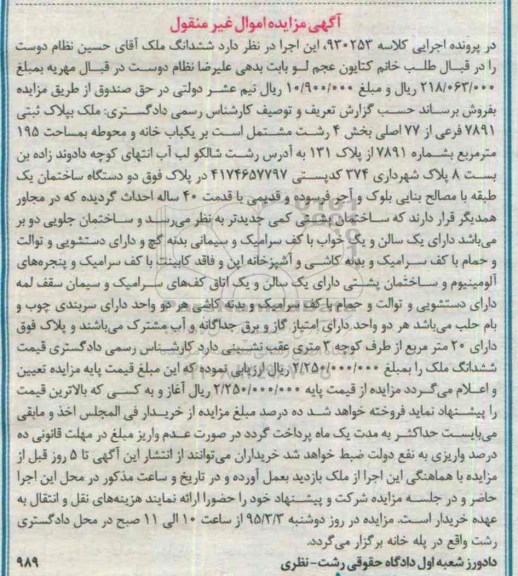 آگهی مزایده اموال غیر منقول
در پرونده اجرایی کلاسه ۹۳۰۲۵۳، این اجرا در نظر دارد ششدانگ ملک آقای حسین نظام دوست
را در قبال طلب خانم کتایون عجم لو بابت بدهی علیرضا نظام دوست در قبال مهریه بمبلغ
۲۱۸/۰۶۳/۰۰۰ ریال و مبلغ ۱۰/۹۰۰/۰۰۰ ریال نیم عشر دولتی در حق صندوق از طریق مزایده
بفروش برساند حسب گزارش تعریف و توصیف کارشناس رسمی دادگستری: ملک بپلاک ثبتی
۷۸۹۱ فرعی از ۷۷ اصلی بخش ۴ رشت مشتمل است بر یکباب خانه و محوطه بمساحت ۱۹۵
مترمربع بشماره ۷۸۹۱ از پلاک ۱۳۱ به آدرس رشت شالکو لب آب انتهای کوچه دادوند زاده بن
بست ۸ پلاک شهرداری ۳۷۴ کدپستی ۴۱۷۴۶۵۷۷۹۷ در پلاک فوق دو دستگاه ساختمان یک
طبقه با مصالح بنایی بلوک و آجر فرسوده و قدیمی با قدمت ۴۰ ساله احداث گردیده که در مجاور
همدیگر قرار دارند که ساختمان پشتی کمی جدیدتر به نظر می‌رسد و ساختمان جلویی دو بر
می‌باشد دارای یک سالن و یک خواب با کف سرامیک و سیمانی بدنه گچ و دارای دستشویی و توالت
و حمام با کف سرامیک و بدنه کاشی و آشپزخانه اپن و فاقد کابینت با کف سرامیک و پنجره‌های
آلومینیوم و ساختمان پشتی دارای یک سالن و یک اتاق کف‌های سرامیک و سیمان سقف لمه
دارای دستشویی و توالت و حمام با کف سرامیک و بدنه کاشی هر دو واحد دارای سربندی چوب و
بام حلب می‌باشد هر دو واحد دارای امتیاز گاز و برق جداگانه و آب مشترک می‌باشند و پلاک فوق
دارای ۲۰ متر مربع از طرف کوچه ۳ متری عقب نشینی دارد کارشناس رسمی دادگستری قیمت
ششدانگ ملک را بمبلغ ۲/۲۵۰/۰۰۰/۰۰۰ ریال ارزیابی نموده که این مبلغ قیمت پایه مزایده تعیین
و اعلام می‌گردد مزایده از قیمت پایه ۲/۲۵۰/۰۰۰/۰۰۰ ریال آغاز و به کسی که بالاترین قیمت
را پیشنهاد نماید فروخته خواهد شد ده درصد مبلغ مزایده از خریدار فی المجلس اخذ و مابقی
می‌بایست حداکثر به مدت یک ماه پرداخت گردد در صورت عدم واریز مبلغ در مهلت قانونی ده
درصد واریزی به نفع دولت ضبط خواهد شد خریداران می‌توانند از انتشار این آگهی تا ۵ روز قبل از
مزایده با هماهنگی این اجرا از ملک بازدید بعمل آورده و در تاریخ و ساعت مذکور در محل این اجرا
حاضر و در جلسه مزایده شرکت و پیشنهاد خود را حضورا ارائه نمایند هزینه‌های نقل و انتقال به
عهده خریدار است. مزایده در روز دوشنبه ۹۵/۳/۳ از ساعت ۱۰ الی ۱۱ صبح در محل دادگستری
رشت واقع در پله خانه برگزار می‌گردد.
دادورز شعبه اول دادگاه حقوقی رشت- نظری ۹۸۹